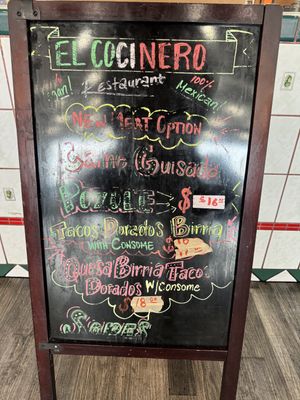 EL COCINERO
Restaurant
100%
Mexican!
New Meat Option
Carne Guisada
Pozole $ $16.00
Tacos Dorados Birria
With Consome
Quesa Birria Taco
Dorados W/ Consome
$ 18.00